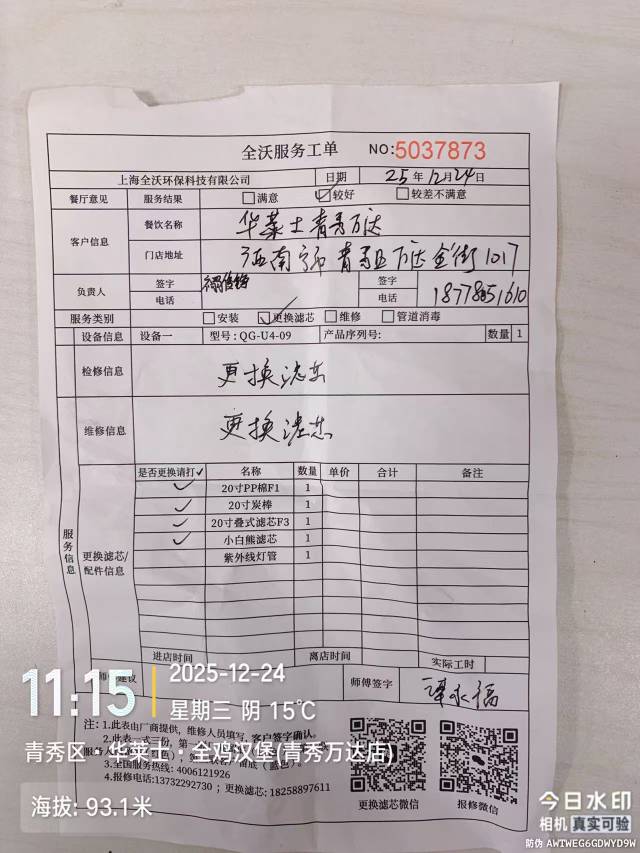 全沃服务工单 NO:5037873
上海全沃环保科技有限公司 日期 25年12月24日
餐厅意见 服务结果 满意 较好 较差不满意
客户信息 餐饮名称 华莱士青秀万达
门店地址 南宁市青秀区万达金街1017
负责人 签字 签字
电话 电话 18778051610
服务类别 安装 更换滤芯 维修 管道消毒
设备信息 设备一 型号:QG-U4-09 产品序列号: 数量 1
检修信息 更换滤芯
维修信息 更换滤芯
服务信息
更换滤芯/配件信息
是否更换请打✓ 名称 数量 单价 合计 备注
✓ 20寸PP棉F1 1
✓ 20寸炭棒 1
✓ 20寸叠式滤芯F3 1
✓ 小白熊滤芯 1
紫外线灯管 1
进店时间 离店时间 实际工时
建议 师傅签字 谭永福
注: 1.此表由厂商提供，维修人员填写，客户签字确认。
2.此表一式三份，第一
3.全国服务热线: 4006121926
4.报修电话:13732292730 ; 更换滤芯: 18258897611
更换滤芯微信 报修微信
11:15 2025-12-24
星期三 阴 15℃
青秀区·华莱士·全鸡汉堡(青秀万达店)
海拔: 93.1米
今日水印
相机 真实可验
防伪 AWTWEG6GDWYD9W